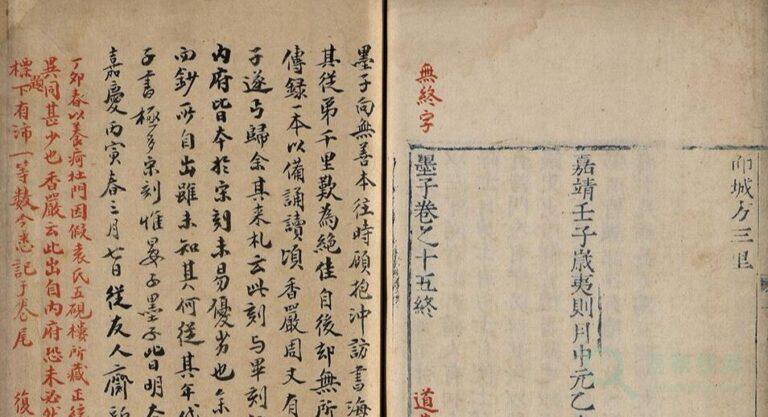 而城方三里
嘉靖壬子歲夷則月中元乙
墨子卷之十五終
無終字
道
墨子向無善本往時顧抱沖訪書海
其從弟千里歎為絕佳自後却無所
傳録一本以備誦讀頃香嚴周丈有
子遂与歸余其来札云此刻与畢刻
內府皆本於宋刻未易優劣也余
而鈔所自出雖未知其何從其年代
子書極多宋刻惟晏子墨子皆明本
嘉慶丙寅春三月七日從友人齋
丁卯春以養疴杜門因假袁氏五硯樓所藏正統
異同甚少也香嚴云此出自內府恐未必然
標題下有沛一等數今悉記于卷尾 復